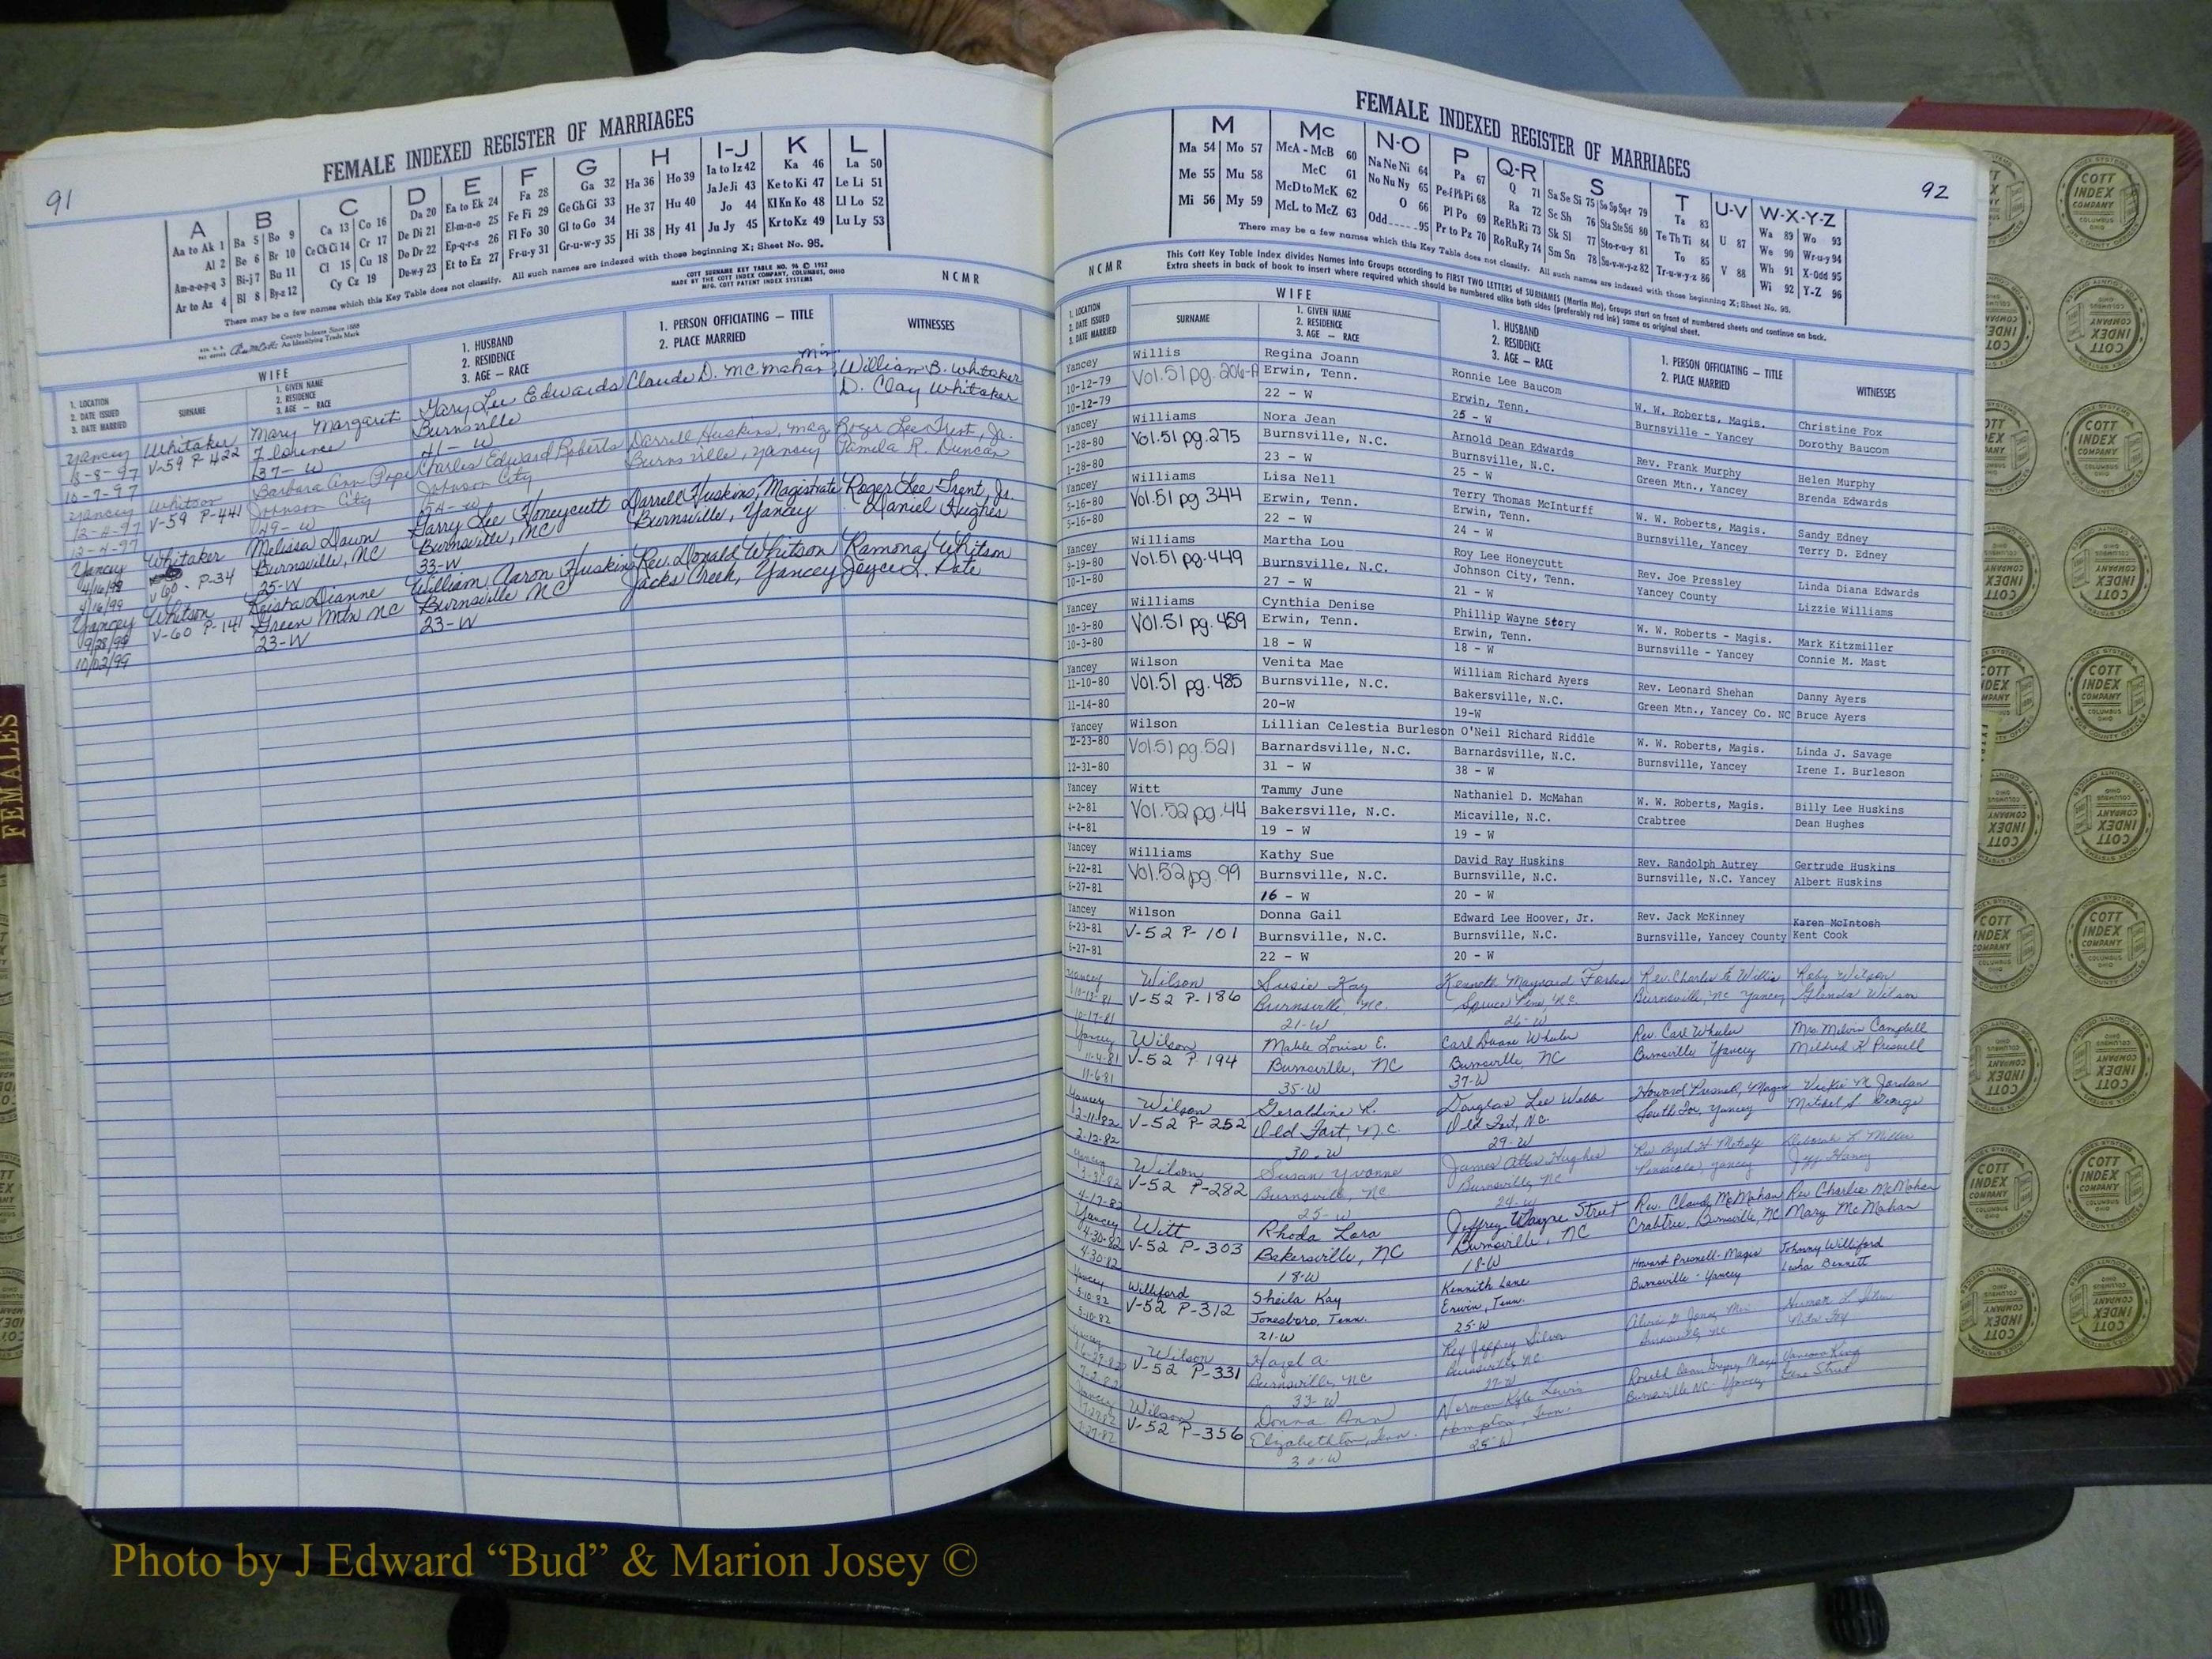 91
FEMALE INDEXED REGISTER OF MARRIAGES
A B C D E F G H I-J K L
Aa to Ak 1 Ba 5 Bo 9 Ca 13 Co 16 Da 20 Ea to Ek 24 Fa 28 Ga 32 Ha 36 Ho 39 Ia to Iz 42 Ka 46 La 50
Al 2 Be 6 Br 10 Ce Ch Ci 14 Cr 17 De Di 21 El-m-n-o 25 Fe Fi 29 Ge Gh Gi 33 He 37 Hu 40 Ja Je Ji 43 Ke to Ki 47 Le Li 51
Am-n-o-p-q 3 Bi-j 7 Bu 11 Cl 15 Cu 18 Do Dr 22 Ep-q-r-s 26 Fl Fo 30 Gl to Go 34 Hi 38 Hy 41 Jo 44 Kl Kn Ko 48 Ll Lo 52
Ar to Az 4 Bl 8 By-z 12 Cy Cz 19 Du-w-y 23 Et to Ez 27 Fr-u-y 31 Gr-u-w-y 35 Ju Jy 45 Kr to Kz 49 Lu Ly 53
There may be a few names which this Key Table does not classify. All such names are indexed with those beginning X; Sheet No. 95.
County Indexes Since 1888
An Identifying Trade Mark
COTT SURNAME KEY TABLE NO. 96 © 1952
MADE BY THE COTT INDEX COMPANY, COLUMBUS, OHIO
MFG. COTT PATENT INDEX SYSTEMS
NCMR
1. LOCATION
2. DATE ISSUED
3. DATE MARRIED
WIFE
SURNAME
1. GIVEN NAME
2. RESIDENCE
3. AGE — RACE
1. HUSBAND
2. RESIDENCE
3. AGE — RACE
1. PERSON OFFICIATING — TITLE
2. PLACE MARRIED
WITNESSES
Yancey Whitaker Mary Margaret Gary Lee Edwards Claude D. McMahan, Min. William B. Whitaker
V-59 P-422 Florence Burnsville D. Clay Whitaker
10-7-97 37-W 41-W
Yancey Whitson Barbara Ann Pope Charles Edward Roberts Darrell Huskins, Mag Roger Lee Trent, Jr.
12-4-97 V-59 P-441 Johnson City Johnson City Burnsville, Yancey Pamela R. Duncan
12-4-97 49-W 54-W
Yancey Whitaker Melissa Dawn Garry Lee Honeycutt Darrell Huskins, Magistrate Roger Lee Trent, Jr.
V60 - P-34 Burnsville, NC Burnsville, NC Burnsville, Yancey Daniel Hughes
4/16/99 25-W 33-W
Yancey Whitson Keisha Dianne William Aaron Huskins Rev. Donald Whitson Ramona Whitson
9/28/99 V-60 P-141 Green Mtn NC Burnsville NC Jacks Creek, Yancey Joyce L. Pate
10/02/99 23-W 23-W
FEMALES
FEMALE INDEXED REGISTER OF MARRIAGES
92
M Mc N-O P Q-R S T U-V W-X-Y-Z
Ma 54 Mo 57 McA - McB 60 Na Ne Ni 64 Pa 67 Q 71 Sa Se Si 75 So Sp Sq-r 79 Ta 83 U 87 Wa 89 Wo 93
Me 55 Mu 58 McC 61 No Nu Ny 65 Pe-f Ph Pi 68 Ra 72 Sc Sh 76 Sta Ste Sti 80 Te Th Ti 84 V 88 We 90 Wr-u-y 94
Mi 56 My 59 McD to McK 62 O 66 Pl Po 69 Re Rh Ri 73 Sk Sl 77 Sto-r-u-y 81 To 85 Wh 91 X-Odd 95
McL to McZ 63 Odd 95 Pr to Pz 70 Ro Ru Ry 74 Sm Sn 78 Su-v-w-y-z 82 Tr-u-w-y-z 86 Wi 92 Y-Z 96
There may be a few names which this Key Table does not classify. All such names are indexed with those beginning X; Sheet No. 95.
This Cott Key Table Index divides Names into Groups according to FIRST TWO LETTERS of SURNAMES (Martin Ma), Groups start on front of numbered sheets and continue on back.
Extra sheets in back of book to insert where required which should be numbered alike both sides (preferably red ink) same as original sheet.
NCMR
1. LOCATION
2. DATE ISSUED
3. DATE MARRIED
WIFE
SURNAME
1. GIVEN NAME
2. RESIDENCE
3. AGE — RACE
1. HUSBAND
2. RESIDENCE
3. AGE — RACE
1. PERSON OFFICIATING — TITLE
2. PLACE MARRIED
WITNESSES
Yancey Willis Regina Joann Ronnie Lee Baucom W. W. Roberts, Magis. Christine Fox
10-12-79 Vol.51 pg. 206-A Erwin, Tenn. Erwin, Tenn. Burnsville - Yancey Dorothy Baucom
10-12-79 22 - W 25 - W
Yancey Williams Nora Jean Arnold Dean Edwards Rev. Frank Murphy Helen Murphy
1-28-80 Vol.51 pg.275 Burnsville, N.C. Burnsville, N.C. Green Mtn., Yancey Brenda Edwards
1-28-80 23 - W 25 - W
Yancey Williams Lisa Nell Terry Thomas McInturff W. W. Roberts, Magis. Sandy Edney
5-16-80 Vol.51 pg 344 Erwin, Tenn. Erwin, Tenn. Burnsville, Yancey Terry D. Edney
5-16-80 22 - W 24 - W
Yancey Williams Martha Lou Roy Lee Honeycutt Rev. Joe Pressley Linda Diana Edwards
9-19-80 Vol.51 pg.449 Burnsville, N.C. Johnson City, Tenn. Yancey County Lizzie Williams
10-1-80 27 - W 21 - W
Yancey Williams Cynthia Denise Phillip Wayne Story W. W. Roberts - Magis. Mark Kitzmiller
10-3-80 Vol.51 pg. 459 Erwin, Tenn. Erwin, Tenn. Burnsville - Yancey Connie M. Mast
10-3-80 18 - W 18 - W
Yancey Wilson Venita Mae William Richard Ayers Rev. Leonard Shehan Danny Ayers
11-10-80 Vol.51 pg.485 Burnsville, N.C. Bakersville, N.C. Green Mtn., Yancey Co. NC Bruce Ayers
11-14-80 20-W 19-W
Yancey Wilson Lillian Celestia Burleson O'Neil Richard Riddle W. W. Roberts, Magis. Linda J. Savage
12-23-80 Vol.51 pg.521 Barnardsville, N.C. Barnardsville, N.C. Burnsville, Yancey Irene I. Burleson
12-31-80 31 - W 38 - W
Yancey Witt Tammy June Nathaniel D. McMahan W. W. Roberts, Magis. Billy Lee Huskins
4-2-81 Vol.52 pg.44 Bakersville, N.C. Micaville, N.C. Crabtree Dean Hughes
4-4-81 19 - W 19 - W
Yancey Williams Kathy Sue David Ray Huskins Rev. Randolph Autrey Gertrude Huskins
6-22-81 Vol.52 pg.99 Burnsville, N.C. Burnsville, N.C. Burnsville, N.C. Yancey Albert Huskins
6-27-81 16 - W 20 - W
Yancey Wilson Donna Gail Edward Lee Hoover, Jr. Rev. Jack McKinney Karen McIntosh
6-23-81 V-52 P-101 Burnsville, N.C. Burnsville, N.C. Burnsville, Yancey County Kent Cook
6-27-81 22 - W 20 - W
Yancey Wilson Susie Kay Kenneth Maynard Forbes Rev. Charles E. Willis Roby Wilson
V-52 P-186 Burnsville, NC. Spruce Pine, N.C. Burnsville, NC Yancey Glenda Wilson
10-17-81 21-W 26-W
Yancey Wilson Mable Louise E. Carl Duane Wheeler Rev. Carl Wheeler Mrs. Melvin Campbell
11-4-81 V-52 P-194 Burnsville, NC Burnsville, NC Burnsville Yancey Mildred K Presnell
11-6-81 35-W 37-W
Yancey Wilson Geraldine R. Douglas Lee Webb Howard Presnell, Magis Vickie M. Jordan
V-52 P-252 Old Fort, N.C. Old Fort, NC. South Toe, Yancey Mitchel S. George
2-12-82 30-W 29-W
Yancey Wilson Susan Yvonne James Atlas Hughes Rev Byrd H. Metcalf Deborah L Miller
3-31-82 V-52 P-282 Burnsville, NC Burnsville, NC Pensacola, Yancey Jeff Haney
4-17-82 25-W 24-W
Yancey Witt Rhoda Lara Jeffrey Wayne Street Rev. Claude McMahan Rev Charlie McMahan
4-30-82 V-52 P-303 Bakersville, NC Burnsville, NC Crabtree, Burnsville, NC Mary McMahan
4-30-82 18-W 18-W
Yancey Williford Sheila Kay Kennith Lane Howard Presnell-Magis Johnny Williford
5-10-82 V-52 P-312 Jonesboro, Tenn. Erwin, Tenn. Burnsville - Yancey Lesha Bennett
5-10-82 21-W 25-W
Yancey Wilson Hazel A. Rex Jeffrey Silver
6-29-82 V-52 P-331 Burnsville, NC Burnsville, NC Burnsville, NC
7-2-82 33-W
Yancey Wilson Donna Ann Norman Kyle Lewis
V-52 P-356 Elizabethton, Tenn. Hampton, Tenn. Burnsville NC - Yancey Gene Street
7-27-82 25-W
COTT INDEX COMPANY
COLUMBUS OHIO
INDEX SYSTEMS FOR COUNTY OFFICES
Photo by J Edward “Bud” & Marion Josey ©